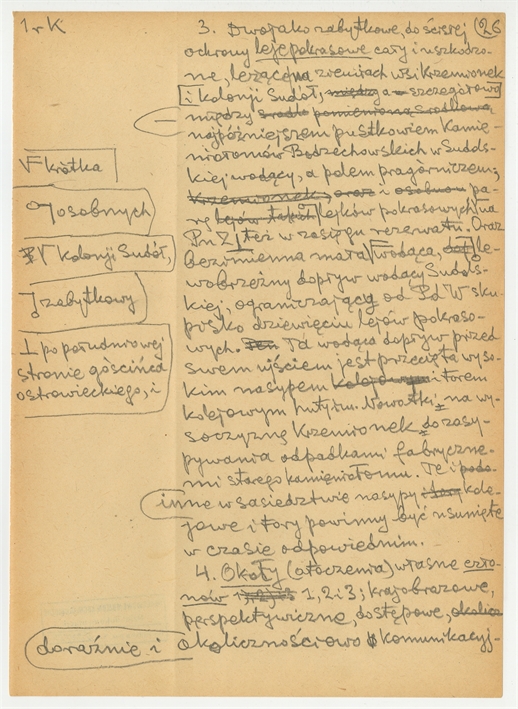 1 r K
26
3. Dwojako zabytkowe, do ścisłej
ochrony leje pokrasowe cały i uszkodzo-
ne, leżące na zrenitach wsi Krzemionek
i kolonji Sudół, między a szczegółowo
między pomienioną środkową
najpóźniejszem pustkowiem Kamie-
niałomów Bodzechowskich w Sudols-
kiej wodący, a polem pragórniczem,
Krzemionek, oraz i osobno pa-
rę lejów takich lejków pokrasowych na
Pn Z też w zasięgu rezerwatu. Oraz
bezimienna mała wodąca, le-
wobrzeżny dopływ wodący Sudols-
kiej, ograniczający od Pd W sku-
pisko dziewięciu lejów pokraso-
wych. Ten Td wodąca dopływ przed
swem ujściem jest przecięta wyso-
kim nasypem kolejowym i torem
kolejowym huty im. Nowotki na wy-
soczyznę Krzemionek do zasy-
pywania odpadkami fabryczne-
mi starego kamieniołomu. Te i podo-
inne w sąsiedztwie nasypy i tory kole-
jowe i tory powinny być usunięte
w czasie odpowiednim.
4. Okoły (otoczenia) własne czło-
nów 1, 2 i 3; krajobrazowe,
perspektywiczne, dostępowe, okolicz
okolicznościowo komunikacyj-
krótka
osobnych
kolonji Sudół,
zabytkowy
po południowej
stronie gościńca
ostrowieckiego, i
doraźnie i